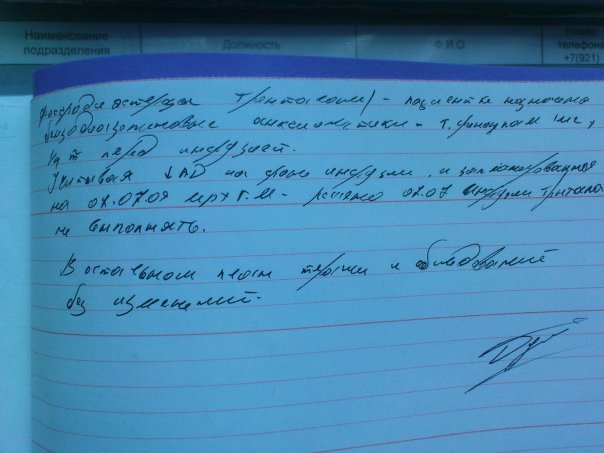 Наименование подразделения
Должность
Ф.И.О
номер телефона
+7(921)
фосфодиэстеразы (трентал) - пациентке назначены
бензодиазепиновые анксиолитики - т. феназепам 1мг,
1/4 т перед инфузией.
Учитывая ↓АД на фоне инфузии и запланированную
на 07.07.09 мрт Г.М - решено 07.07 инфузии трентала
не выполнять.
В остальном план терапии и обследований
без изменений.